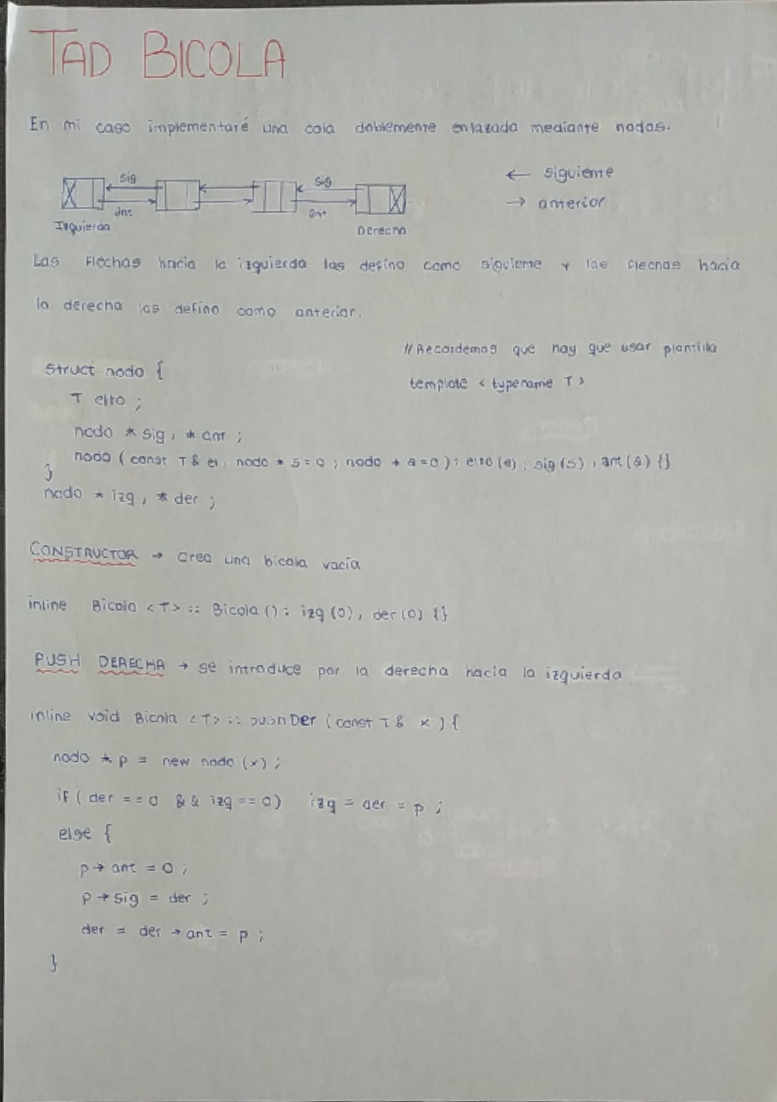 TAD BICOLA
En mi caso implementaré una cola doblemente enlazada mediante nodos.
sig sig
ant ant
Izquierda Derecha
← siguiente
→ anterior
Las flechas hacia la izquierda las defino como siguiente y las flechas hacia
la derecha las defino como anterior.
// Recordemos que hay que usar plantilla
template < typename T >
struct nodo {
T elto ;
nodo * sig , * ant ;
nodo ( const T & e, nodo * s = 0 , nodo * a = 0 ) : elto (e) , sig (s) , ant (a) {}
}
nodo * izq , * der ;
CONSTRUCTOR → Crea una bicola vacía
inline Bicola <T> :: Bicola () : izq (0) , der (0) {}
PUSH DERECHA → se introduce por la derecha hacia la izquierda
inline void Bicola <T> :: pushDer ( const T & x ) {
nodo * p = new nodo (x) ;
if ( der == 0 && izq == 0) izq = der = p ;
else {
p → ant = 0 ;
p → sig = der ;
der = der → ant = p ;
}